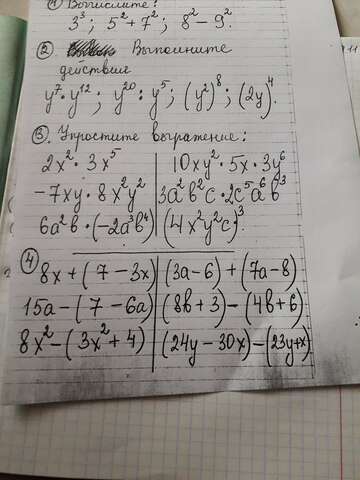 ① Вычислите:
3³; 5²+7²; 8²-9².
②. Выполните
действия
y⁷·y¹²; y²⁰:y⁵; (y²)⁸; (2y)⁴.
③. Упростите выражение:
2x²·3x⁵ | 10xy²·5x·3y⁶
-7xy·8x²y² | 3a²b²c·2c⁵a⁶b³
6a²b·(-2a³b⁴) | (4x²y²c)³
④ 8x+(7-3x) | (3a-6)+(7a-8)
15a-(7-6a) | (8b+3)-(4b+6)
8x²-(3x²+4) | (24y-30x)-(23y+x)